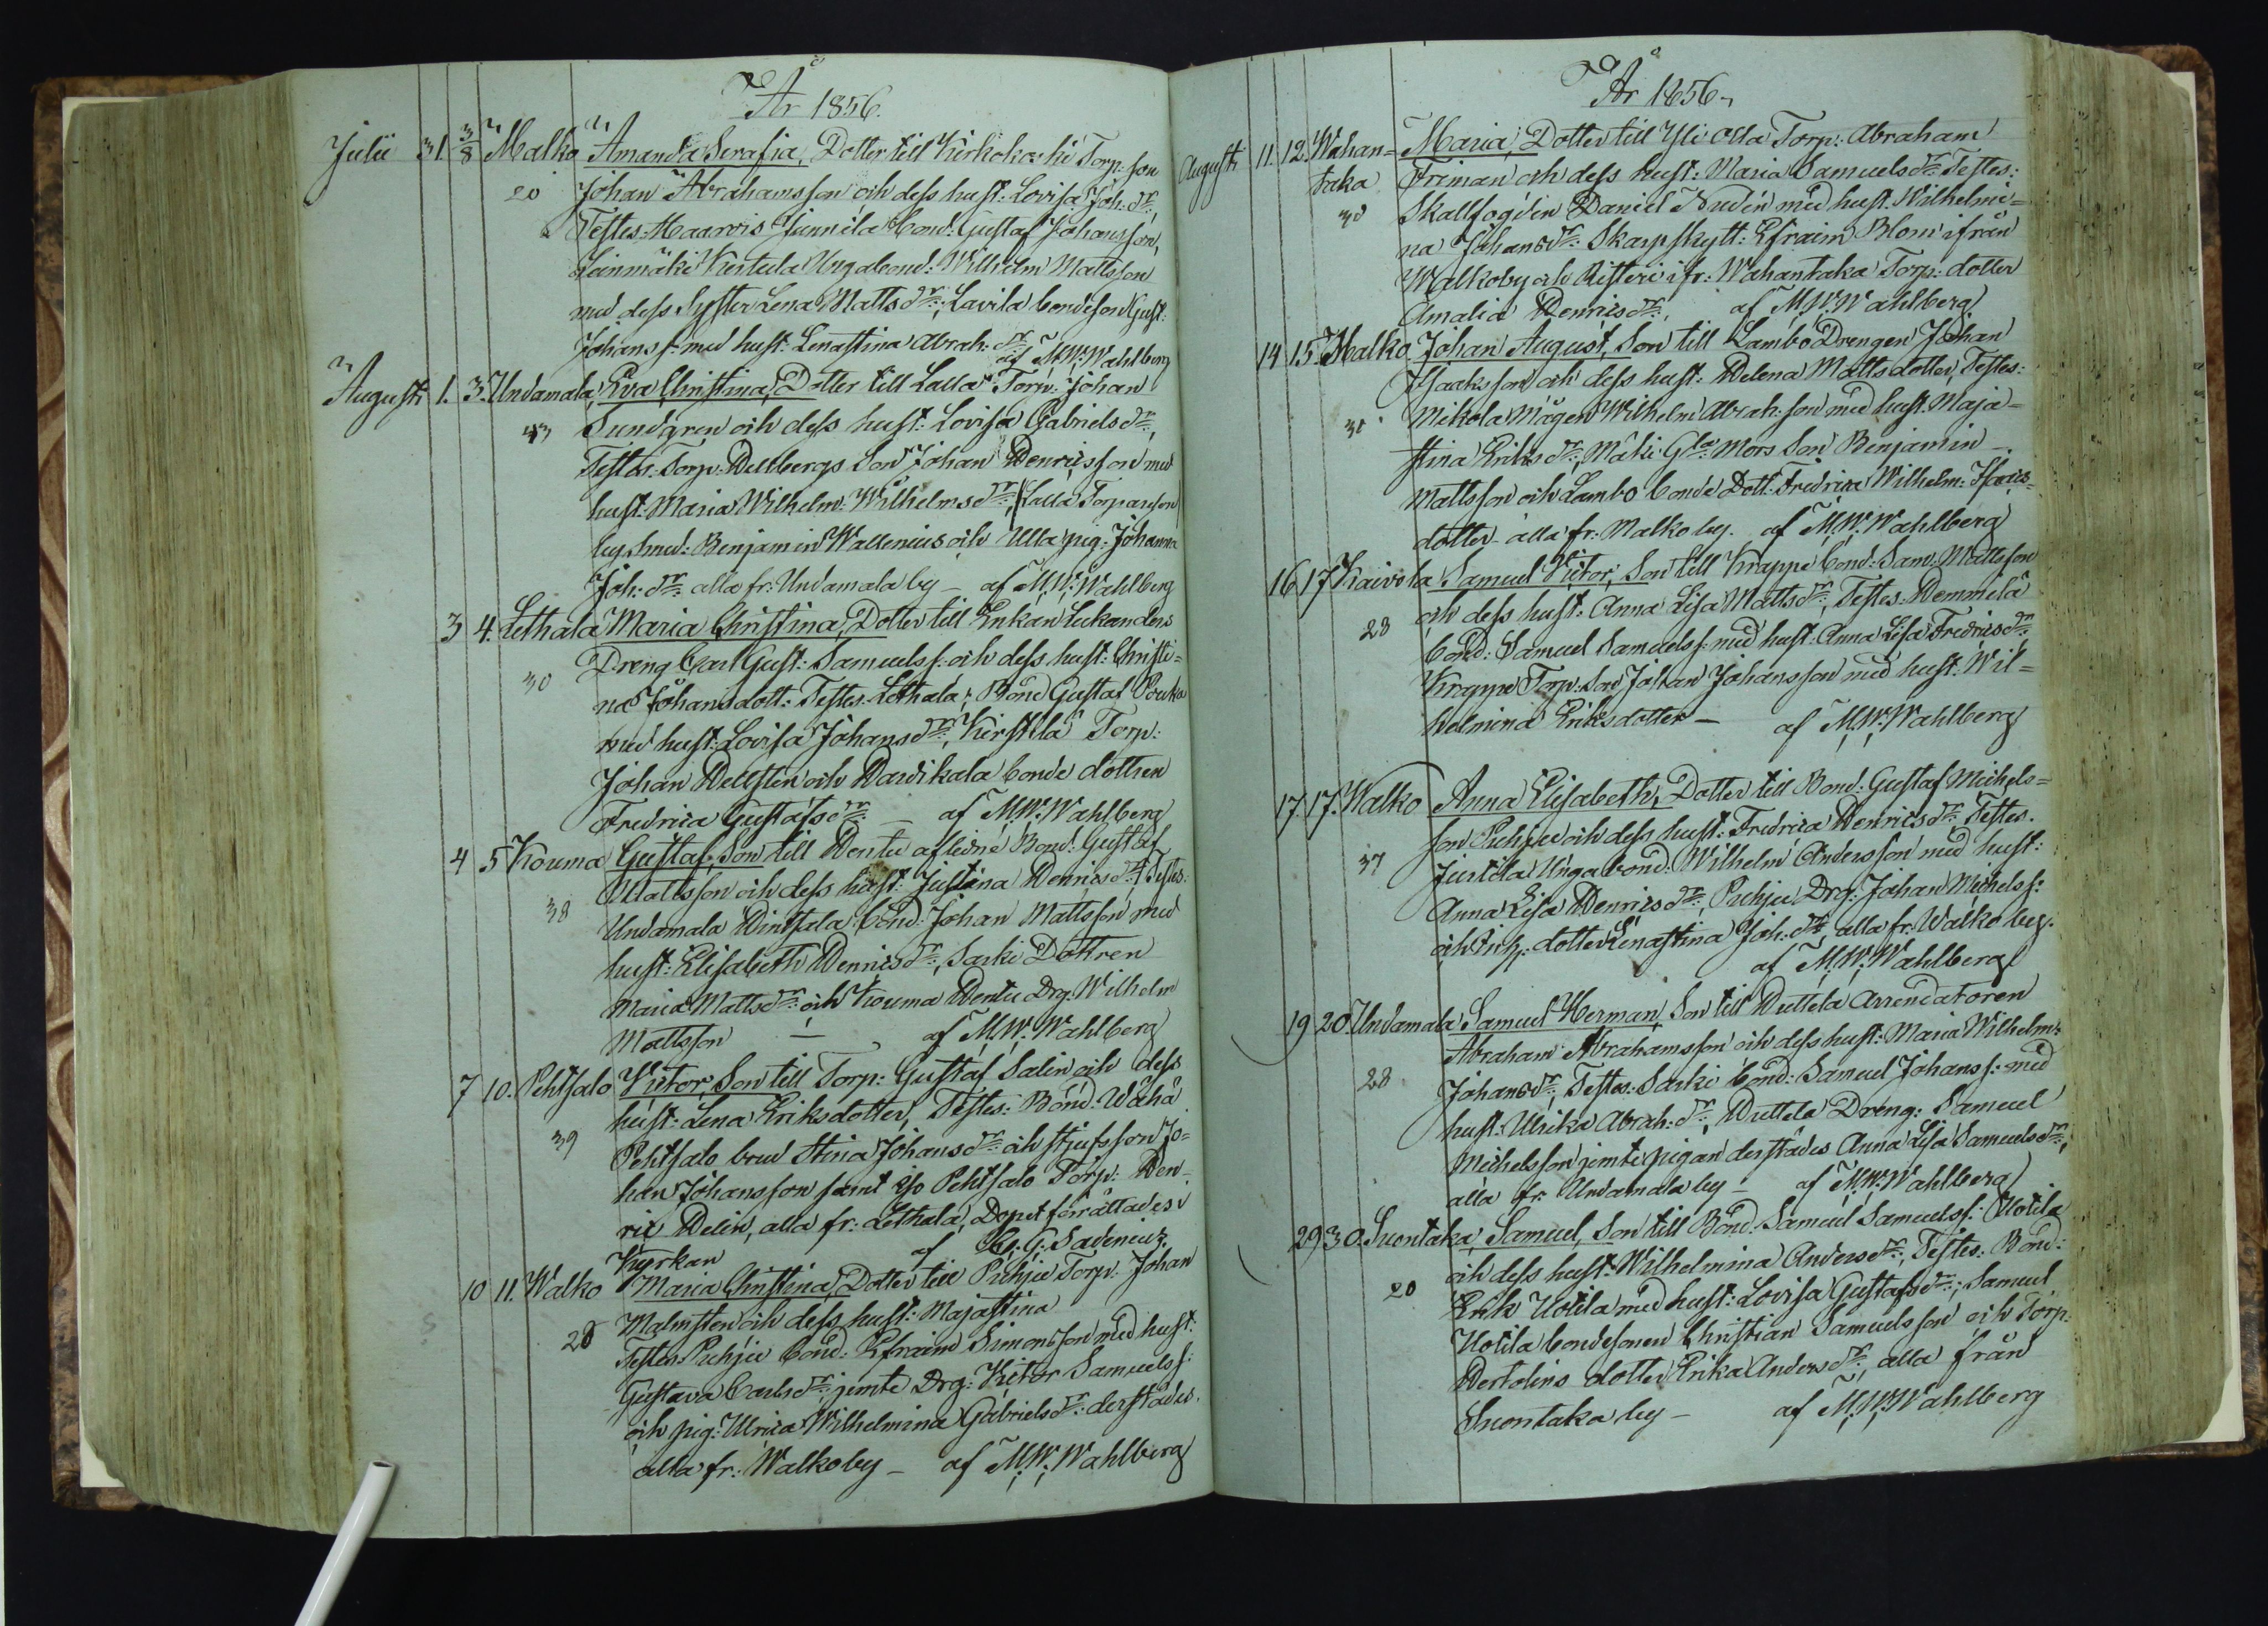 År 1856.
Julii 31. 3/8 Malko Amanda Serafia, Dotter till Kirkokoski Torp. son
20 Johan Abrahamsson och dess hust: Lovisa Joh: dr,
Testes Maarvis Junnila bond: Gustaf Johansson,
Leinmäki Kiertula Ungabond: Wilhelm Mattsson
med dess Syster Lena Mattsdr:, Lavila bondeson Gust.
Johanss: med hust: Lenastina Abrah: dr af M: W: Wahlberg
Augusti 1. 3. Undamala, Eva Christina, Dotter till Lalla Torp: Johan
43 Sundgren och dess hust: Lovisa Gabrielsdr,
Testes: Torp: Hellbergs Son Johan Henricsson med
hust: Maria Wilhelm: Wilhelmsdr:, Lalla Torpareson
Benjamin Wallenius och Ulla pig: Johanna
Joh: dr: alla fr: Undamala by – af M: W: Wahlberg
3 4. Lethala Maria Christina, Dotter till Enkan Leikanders
30 Dreng Carl Gust: Samuelss: och dess hust: Christi=
na Johansdott: Testes: Lethala, Bond Gustaf Pouka
med hust: Lovisa Johansdr:, Kirstilä Torp:
Johan Hellsten och Hardikala bonde dottren
Fredrica Gustafsdr: – af M: W: Wahlberg
4 5 Kouma Gustaf, Son till Hentu aflidne Bond: Gustaf
38 Mattsson och dess hust: Justina Henricsdr: Testes:
Undamala Hintsala bond: Johan Mattsson med
hust: Elisabeth Henricsdr:, Sarki Dottren
Maria Mattsdr: och Kouma Hentu Drg: Wilhelm
Mattsson – af M: W: Wahlberg
7 10. Pehtsalo Victor, Son till Torp: Gustaf Salin och dess
39 hust: Lena Eriksdotter, Testes: Bond: Wähä
Pehtsalo brud Stina Johansdr: och stjufsson Jo=
han Johansson samt Iso Pehtsalo Torp: Hen=
ric Helin, alla fr: Lethala, Dopet förrättades i
Kyrkan af G: G: Sadenius.
10 11. Walko Maria Christina, Dotter till Puhju Torp: Johan
28 Malmsten och dess hust: Majastina
Testes: Puhju bond: Efraim Simonsson med hust:
Gustava Carlsdr: jemte Drg: Victor Samuelss:
och pig: Ulrica Wilhelmina Gabrielsdr: derstädes.
alla fr: Walkoby – af M: W: Wahlberg
År 1856.
Augusti 11. 12. Wahan= Maria, Dotter till Yli Olla Torp: Abraham
taka Friman och dess hust: Maria Samuelsdr: Testes:
30 Skallfogden Daniel Nudin med hust: Wilhelmi=
na Johansdr: Skarpskytt: Efraim Blom ifrån
Malkoby och Risteri ifr: Wahantaka Torp: dotter
Amalia Henricsdr:, af M: W: Wahlberg
14 15 Malko Johan August, Son till Lambo Drengen Johan
Isaaksson och dess hust: Helena Mattsdotter, Testes:
31 Mikola Mågen Wilhelm Abrah: son med hust. Maja=
stina Eriksdr:, Mäki Gla: Mors Son Benjamin –
Mattsson och Lambo bonde Dott: Fredrica Wilhelm: Isacs=
dotter – alla fr: Malko by. af M: W: Wahlberg
16 17 Kaivola Samuel Victor, Son till Krappe bond: Sam: Mattsson
28 och dess hust: Anna Lisa Mattsdr:, Testes: Hemmilä
bond: Samuel Samuelss: med hust: Anna Lisa Fredricsdr:,
Krappe Torp: Son Johan Johansson med hust: Wil=
helmina Eriksdotter – af M: W: Wahlberg
17. 17. Walko Anna Elisabeth, Dotter till Bond: Gustaf Michels=
son Puhju och dess hust: Fredrica Henricsdr: Testes.
37 Junttila Unga bond: Wilhelm Andersson med hust:
Anna Lisa Henricsdr:, Puhju Drg: Johan Michelss:
och dotter Lenastina Joh: dr:, alla fr: Walko by.
af M: W: Wahlberg
19 20. Undamala Samuel Herman, Son till Huttela Arrendatoren
Abraham Abrahamsson och dess hust: Maria Wilhelm:
28 Johansdr:, Testes: Sarki bond: Samuel Johanss: med
hust: Ulrika Abrah: dr:, Huttela Dreng: Samuel
Michelsson jemte pigan derstädes Anna Lisa Samuelsdr:,
alla fr: Undamala by – af M: W: Wahlberg
29 30. Suontaka, Samuel, Son till Bond: Samuel Samuelss: Uotila
20 och dess hust: Wilhelmina Andersdr:, Testes: Bond:
Erik Uotila med hust: Lovisa Gustafsdr:, Samuel
Uotila bondesonen Christian Samuelsson och Torp:
Hertolins dotter Erika Andersdr:, alla från
Suontaka by – af M: W: Wahlberg